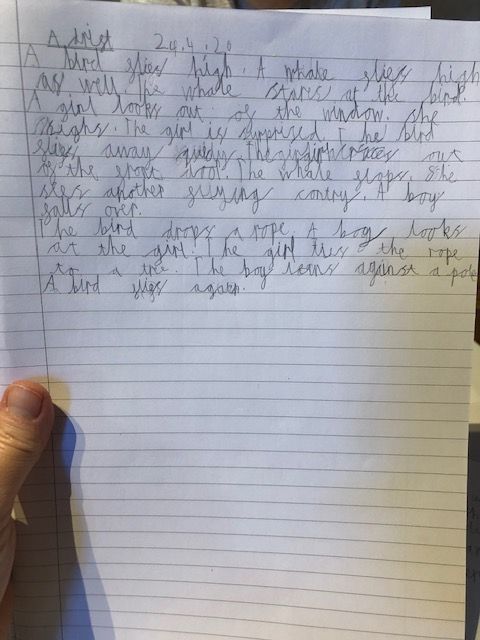 A drist 24.4.20
A bird flies high. A whale flies high
as well. The whale stares at the bird.
A girl looks out of the window. she
sighs. The girl is surprised The bird
flies away The girl out
of the front door. The whale flops. She
sees another flying contry. A boy
falls over.
The bird drops a rope. A boy looks
at the girl. The girl ties the rope
to a tree. The boy leans against a pole
A bird flies again.